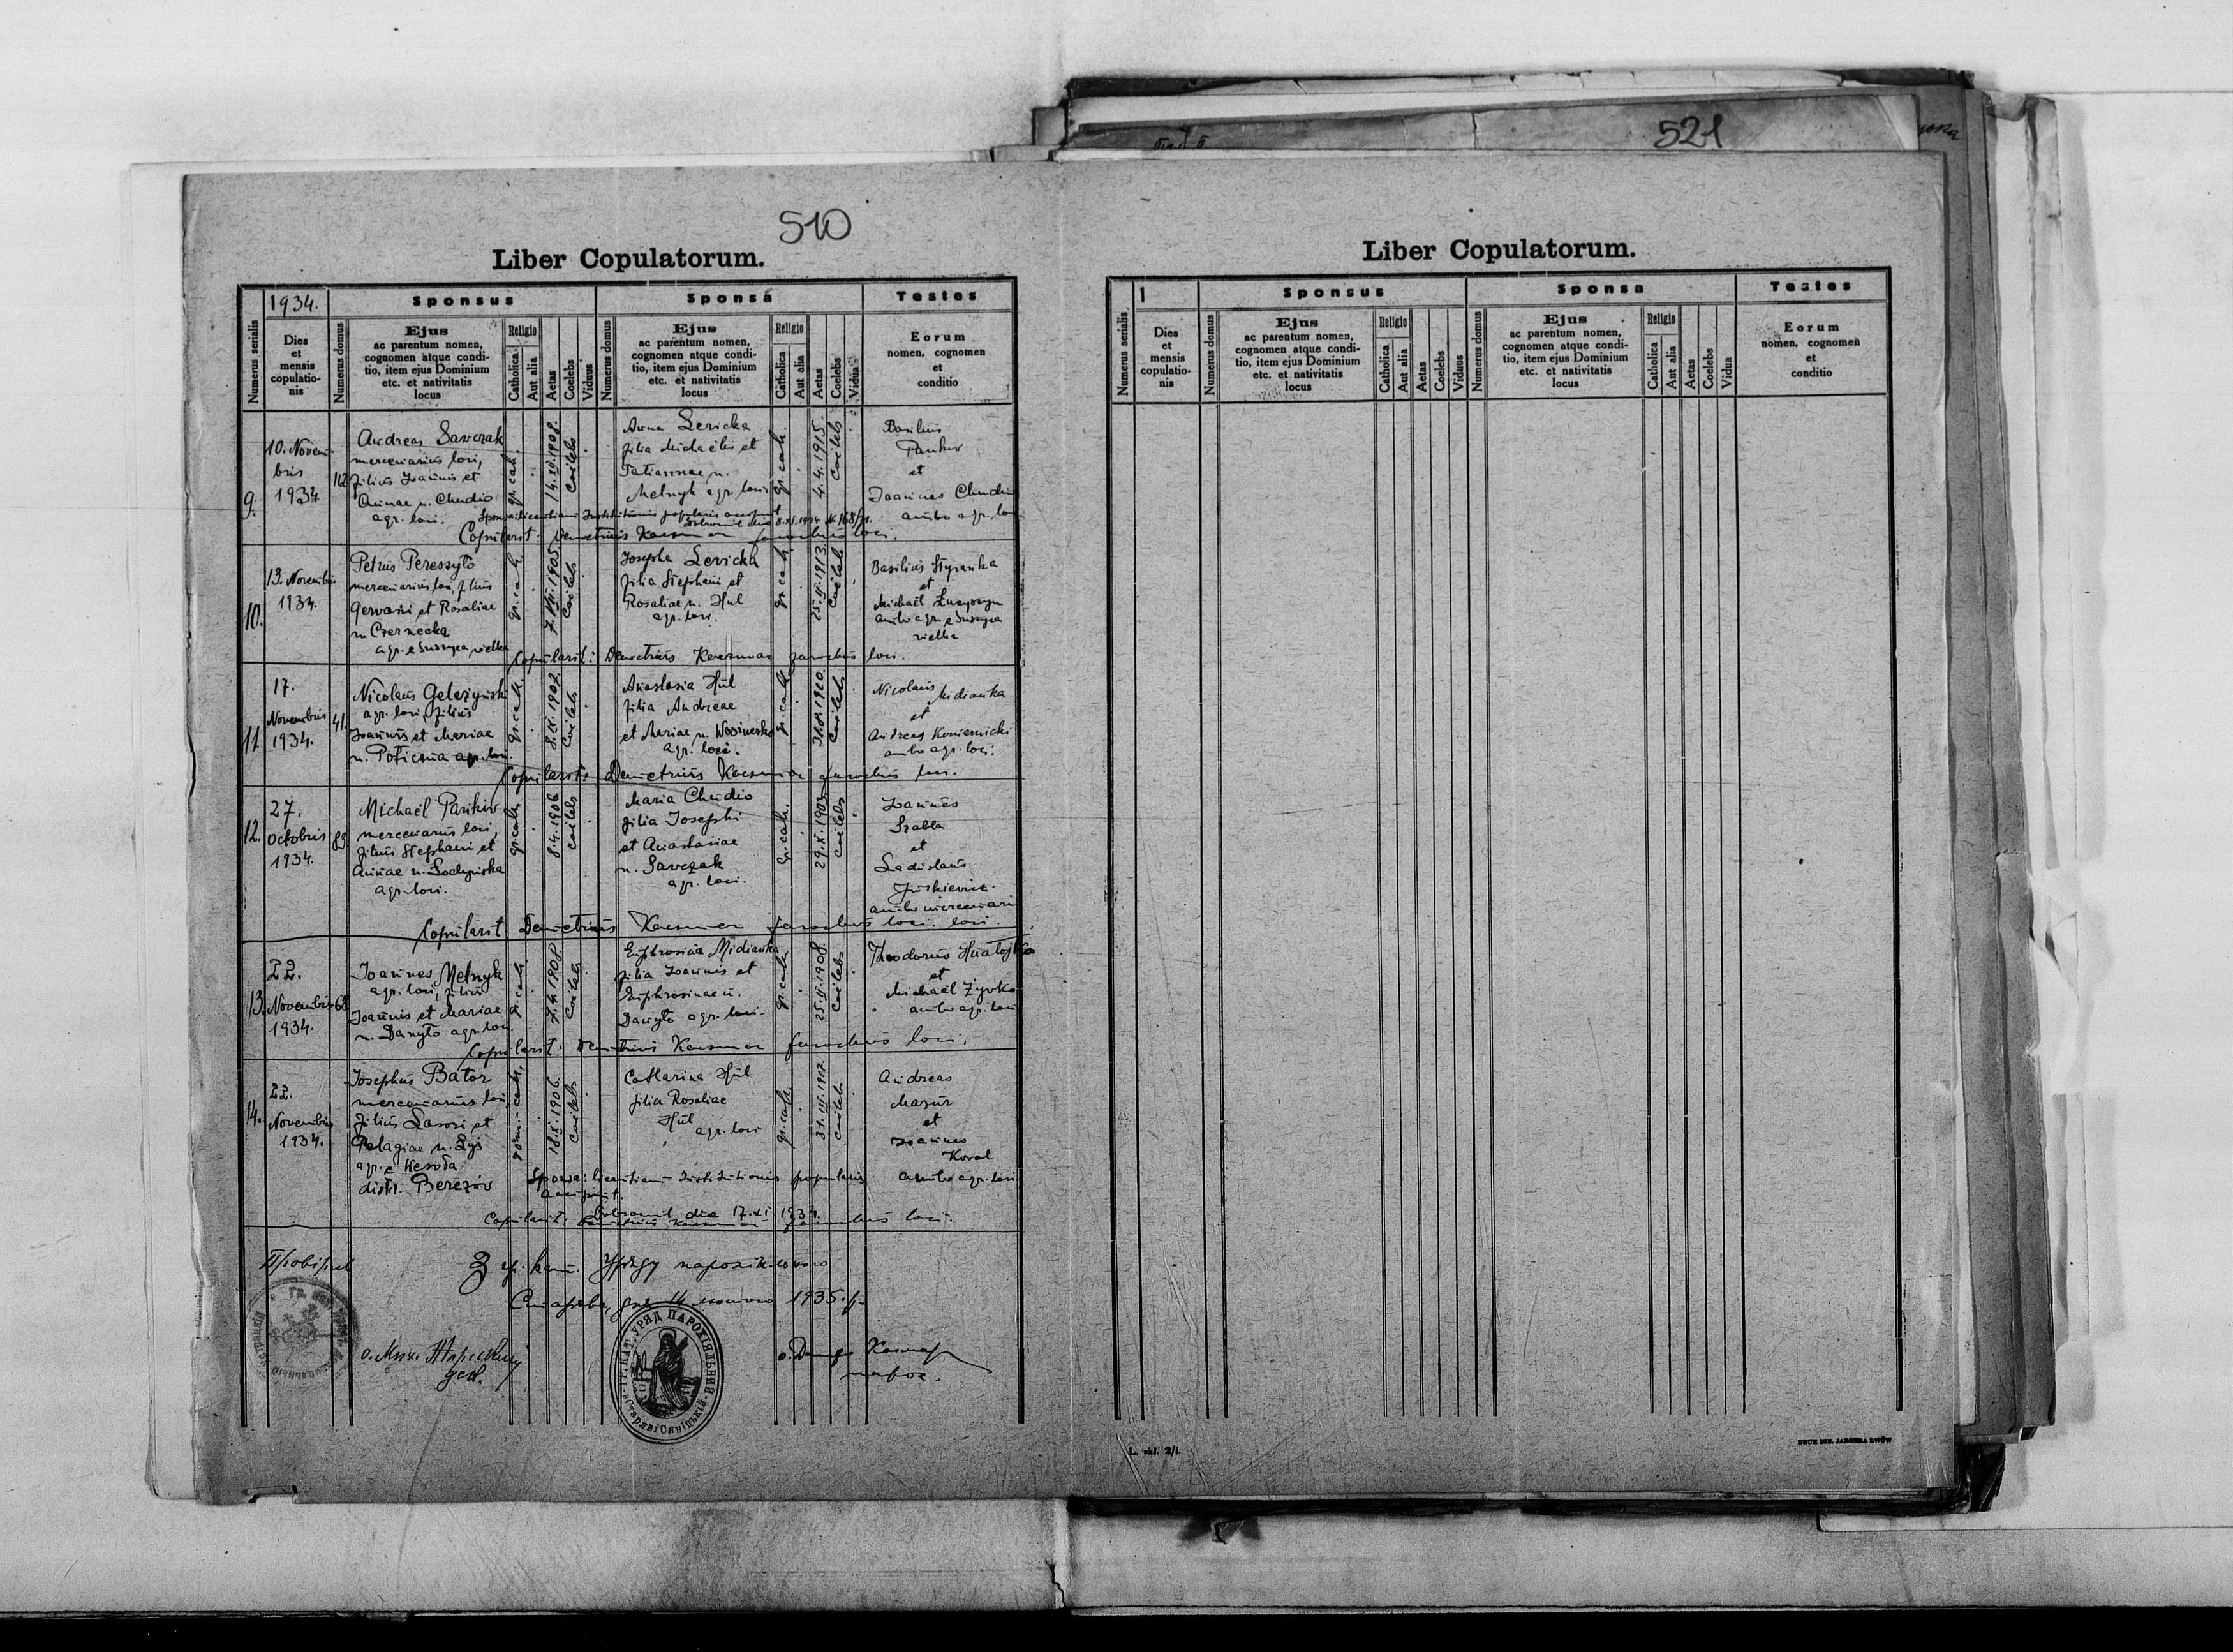 510
Liber Copulatorum.
1934.
Sponsus
Sponsa
Testes
Numerus serialis
Dies
et
mensis
copulatio-
nis
Numerus domus
Ejus
ac parentum nomen,
cognomen atque condi-
tio, item ejus Dominium
etc. et nativitatis
locus
Religio
Catholica
Aut alia
Aetas
Coelebs
Viduus
Numerus domus
Ejus
ac parentum nomen,
cognomen atque condi-
tio, item ejus Dominium
etc. et nativitatis
locus
Religio
Catholica
Aut alia
Aetas
Coelebs
Vidua
Eorum
nomen, cognomen
et
conditio
9.
10. Novem-
bris
1934.
112
Andreas Sawczak
mercenarius loci,
filius Joannis et
Annae n. Chudio
agr. loci.
gr. cath.
14.XI.1908.
Coelebs
Anna Lericka
filia Michaelis et
Tatiannae n.
Melnyk agr. loci
gr. cath.
4.4.1915.
Coelebs
Basilius
Pankiv
et
Joannes Chudio
ambo agr. loci
Copularit: Demetrius Kaesmar parochus loci.
10.
13. Novembris
1934.
Petrus Peressyto
mercenarius loci, filius
Gervasii et Rosaliae
n. Czernecka
agr. e Suszyca wielka
gr. cath.
7.VII.1905.
Coelebs
Josepha Lericka
filia Stephani et
Rosaliae n. Hul
agr. loci.
gr. cath.
25.II.1913.
Coelebs
Basilius Styranka
et
Michaël
ambo agr. e Suszyca
wielka
Copularit: Demetrius Kaesmar parochus loci.
11.
17.
Novembris
1934.
41.
Nicolaus Gelazynski
agr. loci, filius
Joannis et Mariae
n. agr. loci
gr. cath.
8.IX.1907.
Coelebs
Anastasia Hul
filia Andreae
et Mariae n.
agr. loci.
gr. cath.
31.8.1910.
Coelebs
Nicolaus Midianka
et
Andreas Koniernicki
ambo agr. loci.
Copularit: Demetrius Kaesmar parochus loci.
12.
27.
Octobris
1934.
89.
Michaël Pankiv
mercenarius loci,
filius Stephani et
Annae n.
agr. loci.
gr. cath.
8.4.1906
coelebs
Maria Chudio
filia Josephi
et Anastasiae
n. Savczak
agr. loci.
gr. cath.
29.X.1903.
Coelebs
Joannes
Szabla
et
Ladislaus
Juskiewicz.
ambo mercenarii
loci.
Copularit: Demetrius Kaesmar parochus loci.
13.
22.
Novembris
1934.
68
Joannes Melnyk
agr. loci, filius
Joannis et Mariae
n. Danyto agr. loci
gr. cath.
7.4.1908
Coelebs
Euphrosina Midianka
filia Joannis et
Euphrosinae n.
Danyto agr. loci.
gr. cath.
25.II.1908.
Coelebs
Theodorus Hnatojko
et
Michaël Zyvko
ambo agr. loci
Copularit: Demetrius Kaesmar parochus loci.
14.
22.
Novembris
1934.
Josephus Bator
mercenarius loci,
filius et
Pelagiae n.
agr. e Wesoła
distr. Berezów
rom.-cath.
18.X.1906.
Coelebs
Catharina Hul
filia Rosaliae
Hul
agr. loci
gr. cath.
31.III.1912.
coelebs
Andreas
Mazur
et
Joannes
Koval
ambo agr. loci
Sponsa: licentiam Institutionis popularis
accipiunt.
Dobromil die 17.XI.1934.
Copularit: Demetrius Kaesmar parochus loci.
Провірив
З гр. кат. Уряду парохіяльного
Старява, дня 14 лютого 1935 р.
ГР. КАТ. УРЯД ПАРОХІЯЛЬНИЙ
521
Liber Copulatorum.
1
Sponsus
Sponsa
Testes
Numerus serialis
Dies
et
mensis
copulatio-
nis
Numerus domus
Ejus
ac parentum nomen,
cognomen atque condi-
tio, item ejus Dominium
etc. et nativitatis
locus
Religio
Catholica
Aut alia
Aetas
Coelebs
Viduus
Numerus domus
Ejus
ac parentum nomen,
cognomen atque condi-
tio, item ejus Dominium
etc. et nativitatis
locus
Religio
Catholica
Aut alia
Aetas
Coelebs
Vidua
Eorum
nomen, cognomen
et
conditio
L. skł. 2/I.
DRUK IGN. JAEGERA LWÓW